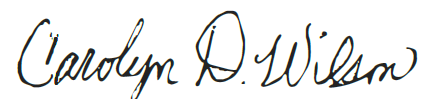 Carolyn D. Wilson